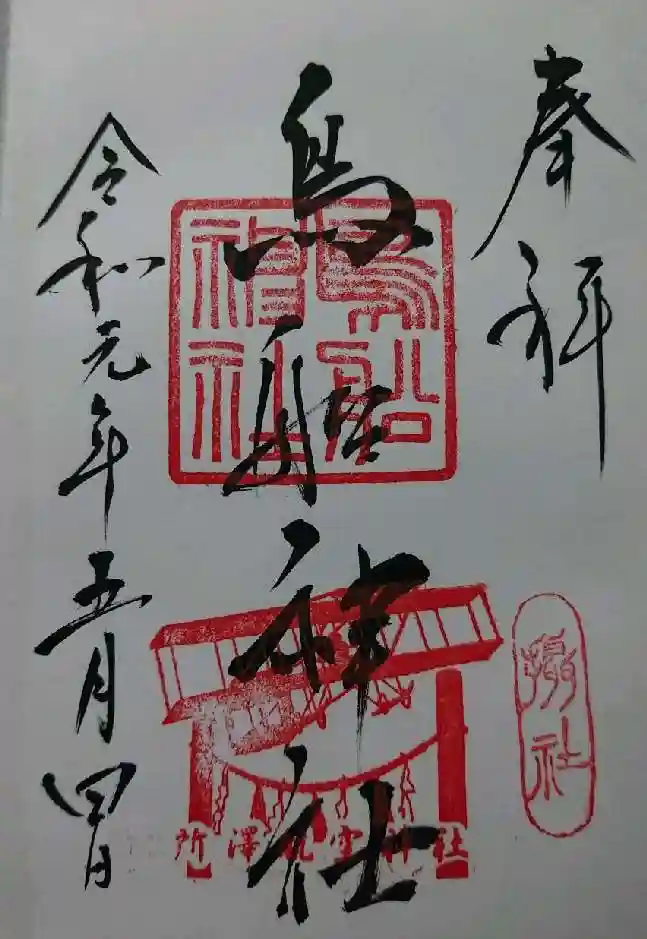 奉拝
鳥船神社
令和元年五月四日
鳥船神社
所澤航空神社
摂社